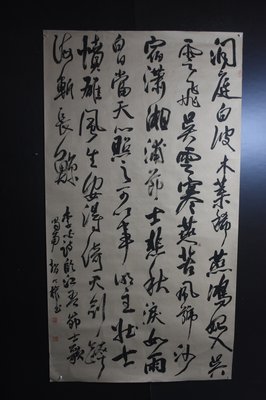 洞庭白波木葉稀燕鴻始入吳
雲飛吳雲寒燕苦風號沙
宿瀟湘浦節士悲秋淚如雨
白日當天心照之可以事明主壯士
憤雄風生安得倚天劍跨
海斬長鯨
李白詩臨江王節士歌